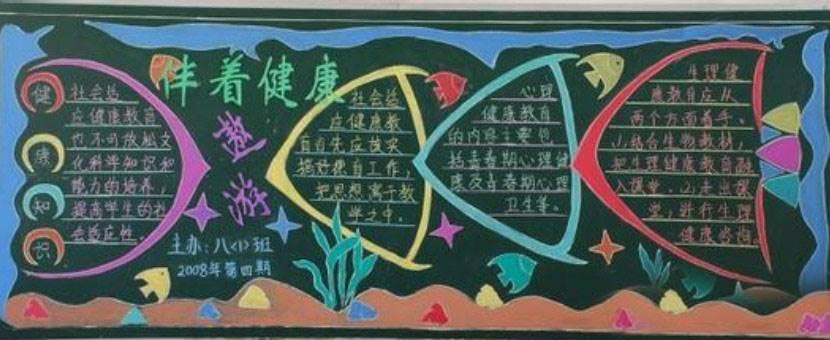 伴着健康
遨游
健
康
知
识
社会适
应健康教育
也不可放松文
化科学知识和
能力的培养,
提高学生的社
会适应性。
主办:八<1>班
2008年第四期
社会适
应健康教
育首先应该实
搞好德育工作,
把思想寓于教
学之中。
心理
健康教育
的内容主要包
括青春期心理健
康及青春期心理
卫生等。
生理健
康教育应从
两个方面着手。
⑴结合生物教材,
把生理健康教育融
入课堂。⑵走出课
堂,进行生理
健康咨询。